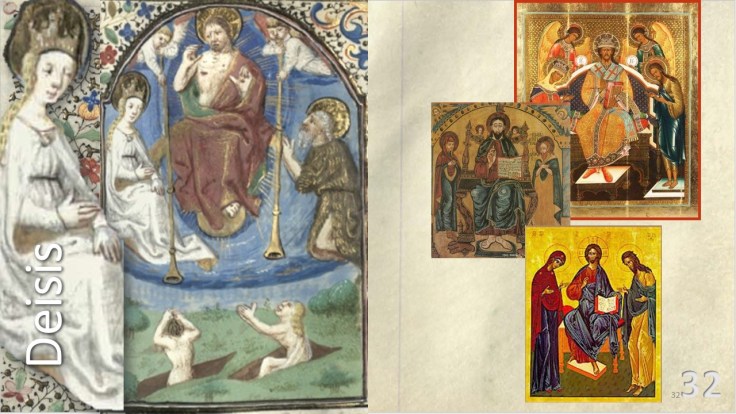 Deisis
32
32